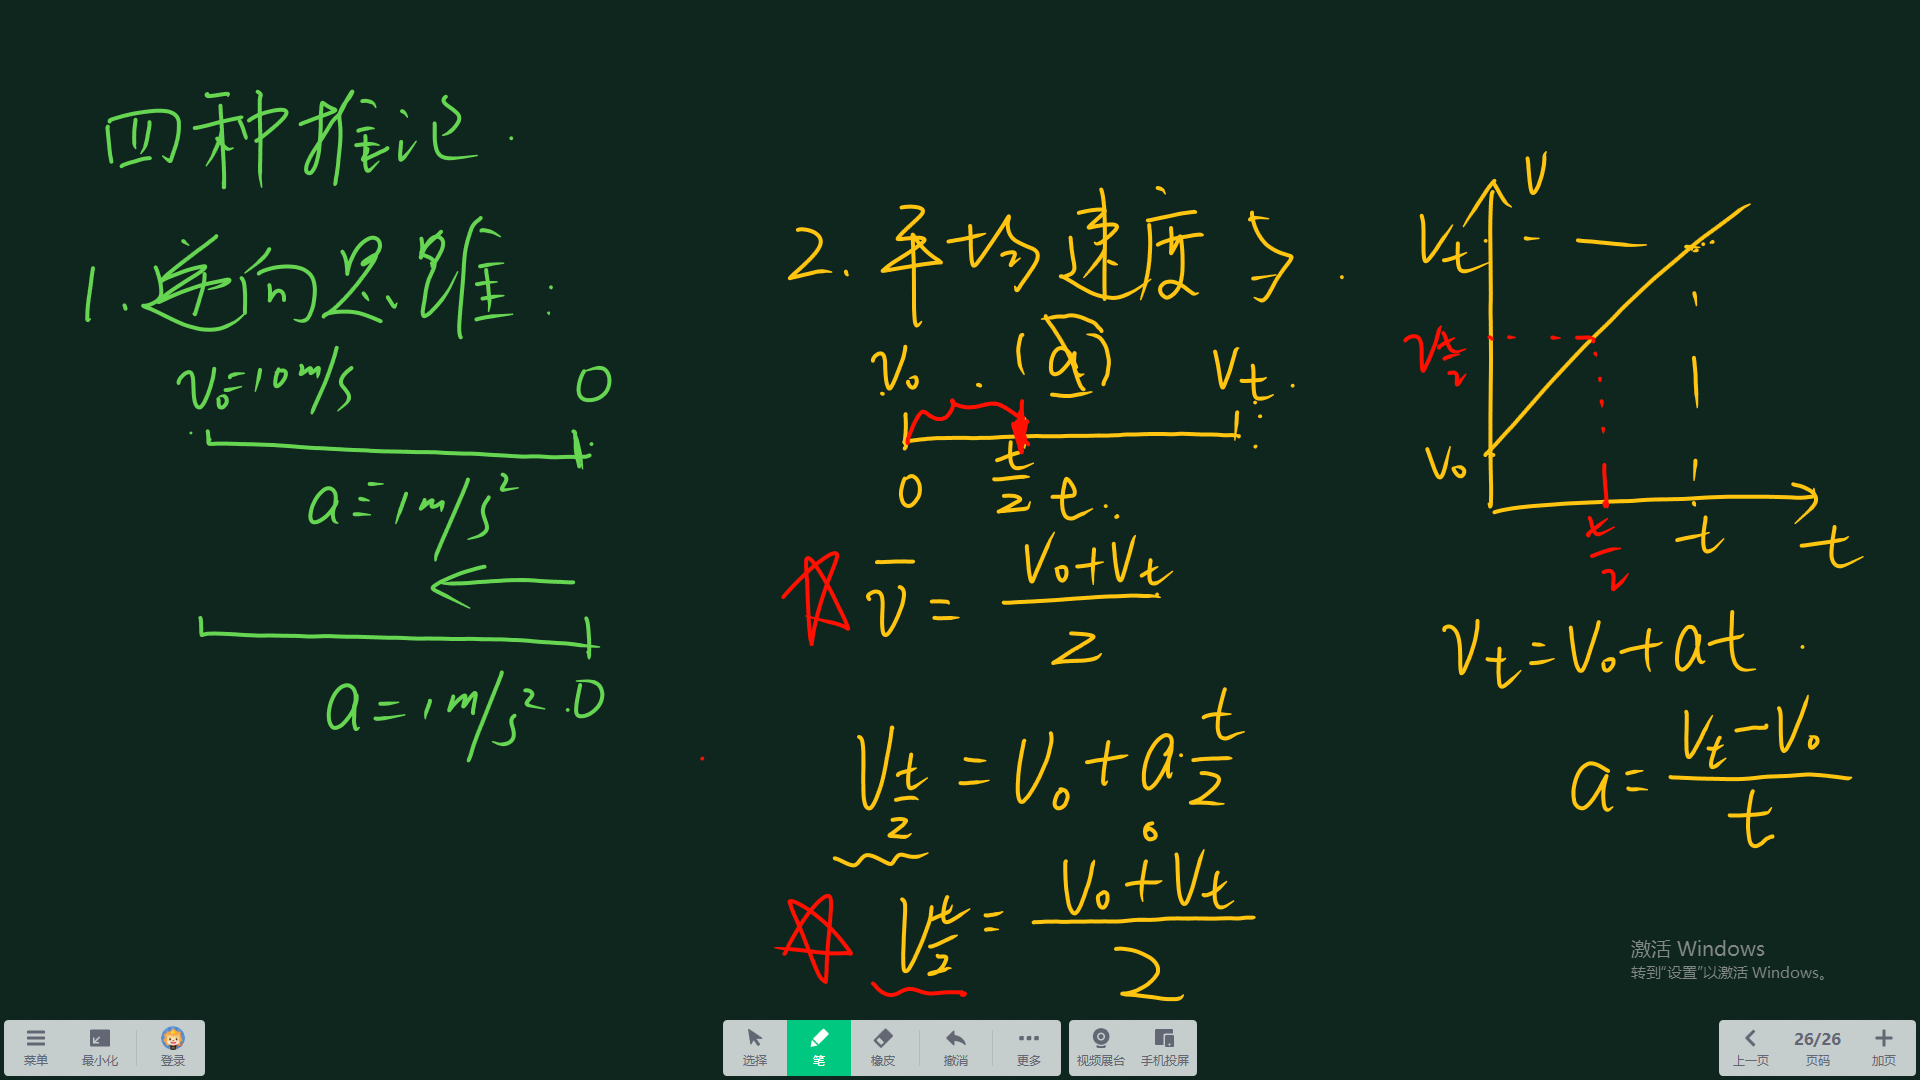 四种推论.
1.逆向思维:
v₀=10m/s 0
a=1m/s²
a=1m/s² 0
2.平均速度
v₀ (a) Vₜ
0 t/2 t
v̅ = (V₀+Vₜ)/2
V_(t/2) = V₀+a·t/2
V_(t/2) = (V₀+Vₜ)/2
V
Vₜ
V_(t/2)
V₀
t/2 t t
Vₜ=V₀+at
a=(Vₜ-V₀)/t
激活 Windows
转到“设置”以激活 Windows。
菜单 最小化 登录
选择 笔 橡皮 撤消 更多
视频展台 手机投屏
26/26
上一页 页码 加页